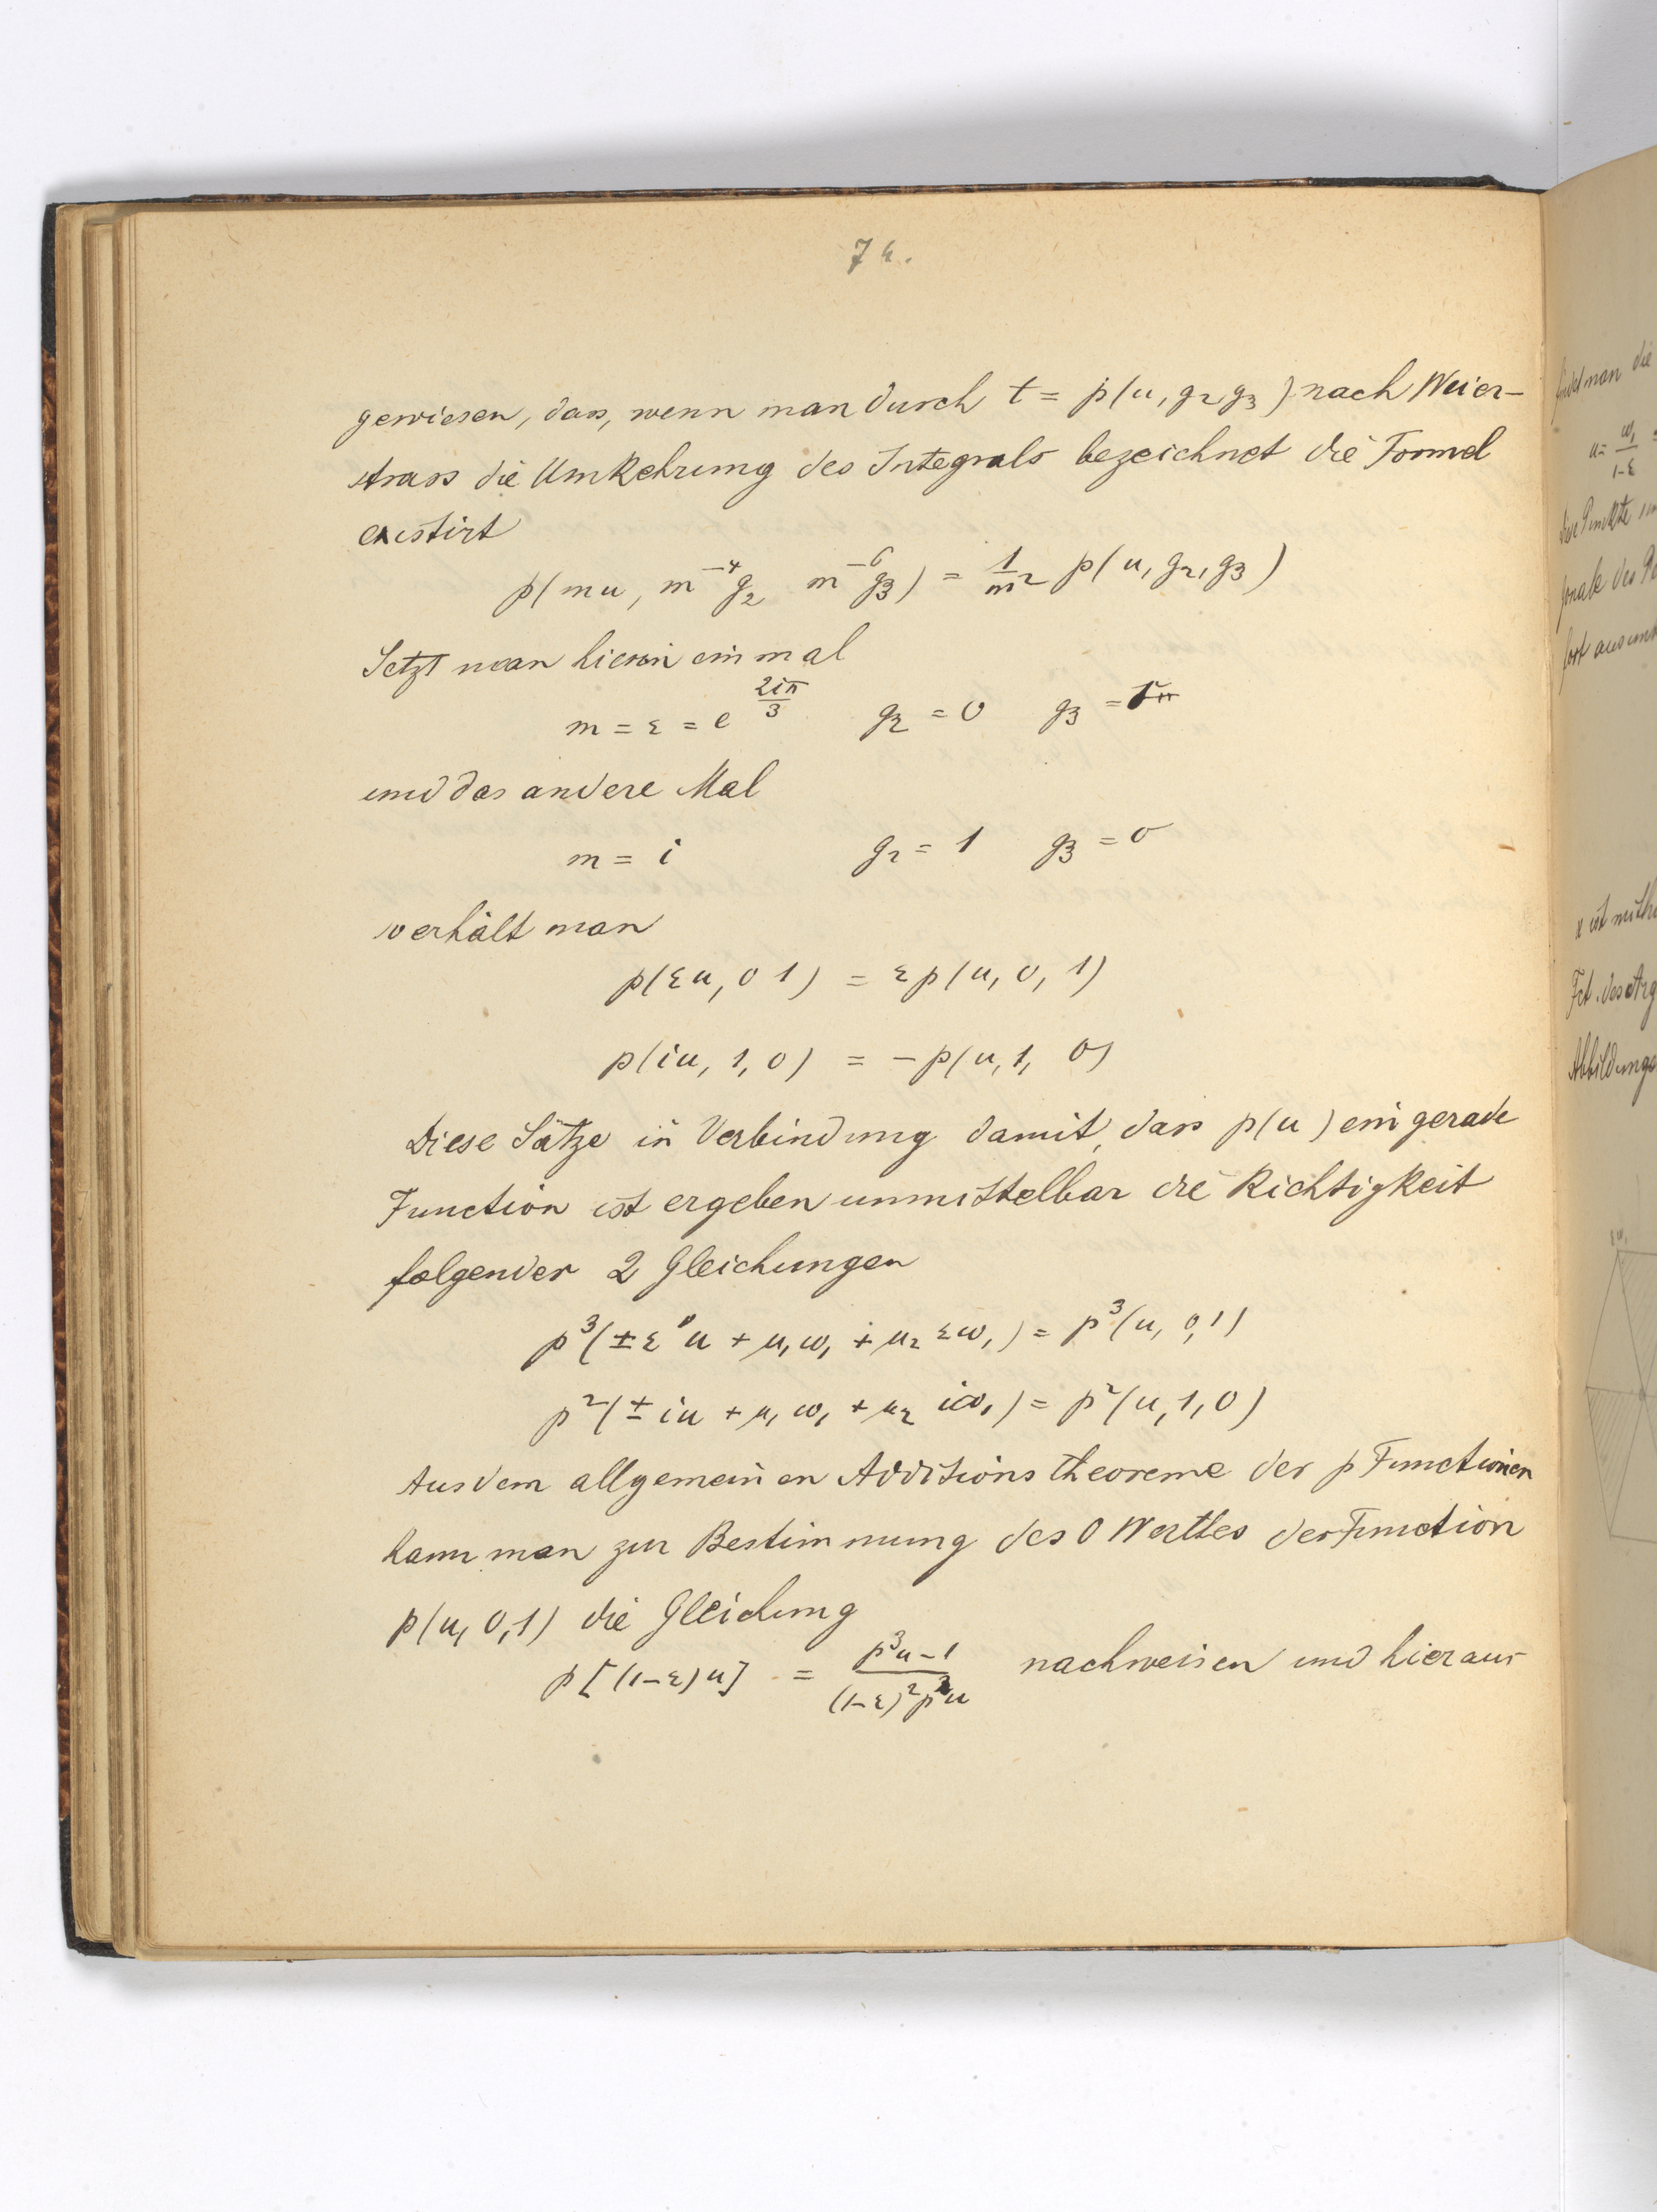 74.
gewiesen, dass, wenn man durch t = p(u, g₂ g₃) nach Weier-
strass die Umkehrung des Integrals bezeichnet die Formel
existirt
p(mu, m⁻⁴g₂ m⁻⁶g₃) = 1/m² p(u, g₂, g₃)
Setzt man hierin einmal
m = ε = e^(2iπ/3) g₂ = 0 g₃ = 1
und das andere Mal
m = i g₂ = 1 g₃ = 0
so erhält man
p(εu, 0 1) = εp(u, 0, 1)
p(iu, 1, 0) = -p(u, 1, 0)
Diese Sätze in Verbindung damit, dass p(u) ein gerade
Function ist ergeben unmittelbar die Richtigkeit
folgender 2 Gleichungen
p³(±ε u + μ₁ω₁ + μ₂ εω₁) = p³(u, 0, 1)
p²(± iu + μ₁ ω₁ + μ₂ iω₁) = p²(u, 1, 0)
Aus dem allgemeinen Additionstheoreme der p Functionen
kann man zur Bestimmung des 0 Werthes der Function
p(u, 0, 1) die Gleichung
p[(1-ε)u] = (p³u - 1)/((1-ε)²p²u) nachweisen und hieraus
man die
u = ω₁/(1-ε) =
die Punkte
x ist mithi
Fct. des Arg
Abbildungs